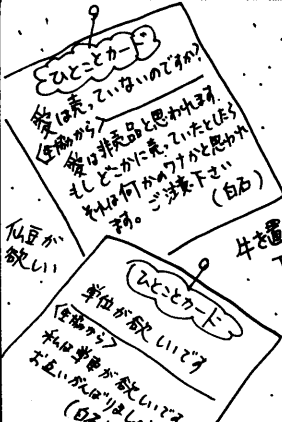 ひとことカード
愛は売っていないのですか?
〈生協から〉
愛は非売品と思われます.
もしどこかに売っていたとしたら
それは何かのワナかと思われ
ます。ご注意下さい
(白石)
仙豆が
欲しい
牛を置
ひとことカード
単位が欲しいです
〈生協から〉
私は単車が欲しいです
お互いがんばりまし
(白石